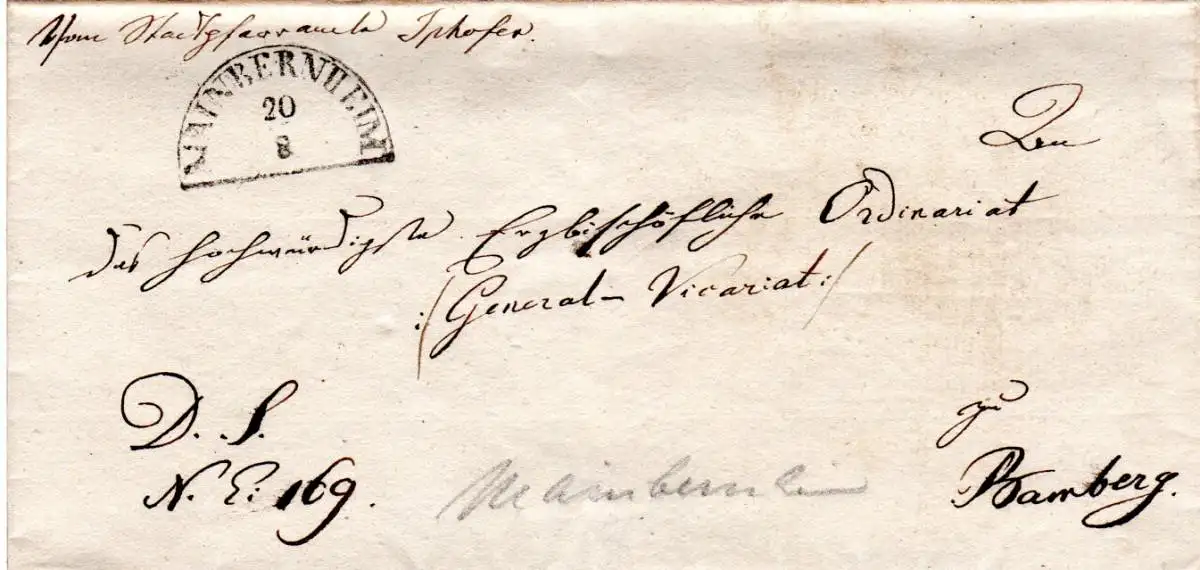 Vom Stadtpfarramte Iphofen.
MAINBERNHEIM
20
8
An
das hochwürdigste Erzbischöfliche Ordinariat
:/General-Vicariat:/
D. S.
N. E: 169.
zu
Bamberg.
Mainbernheim